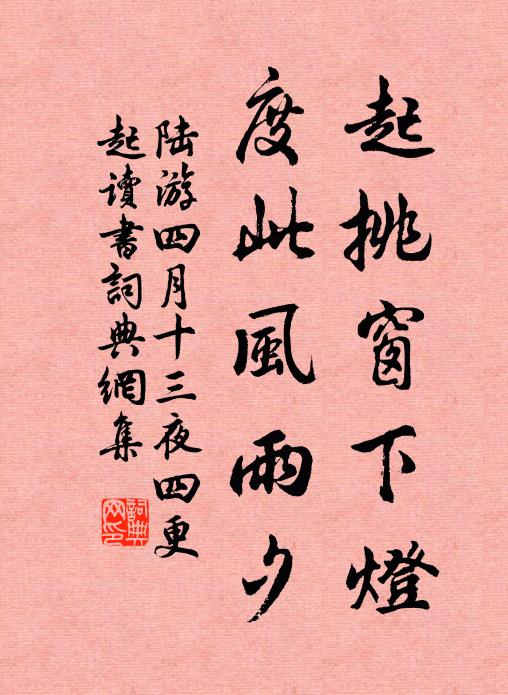 起挑窗下燈
度此風雨夕
陸游四月十三夜四更
起讀書詞典網集
詞典
网印